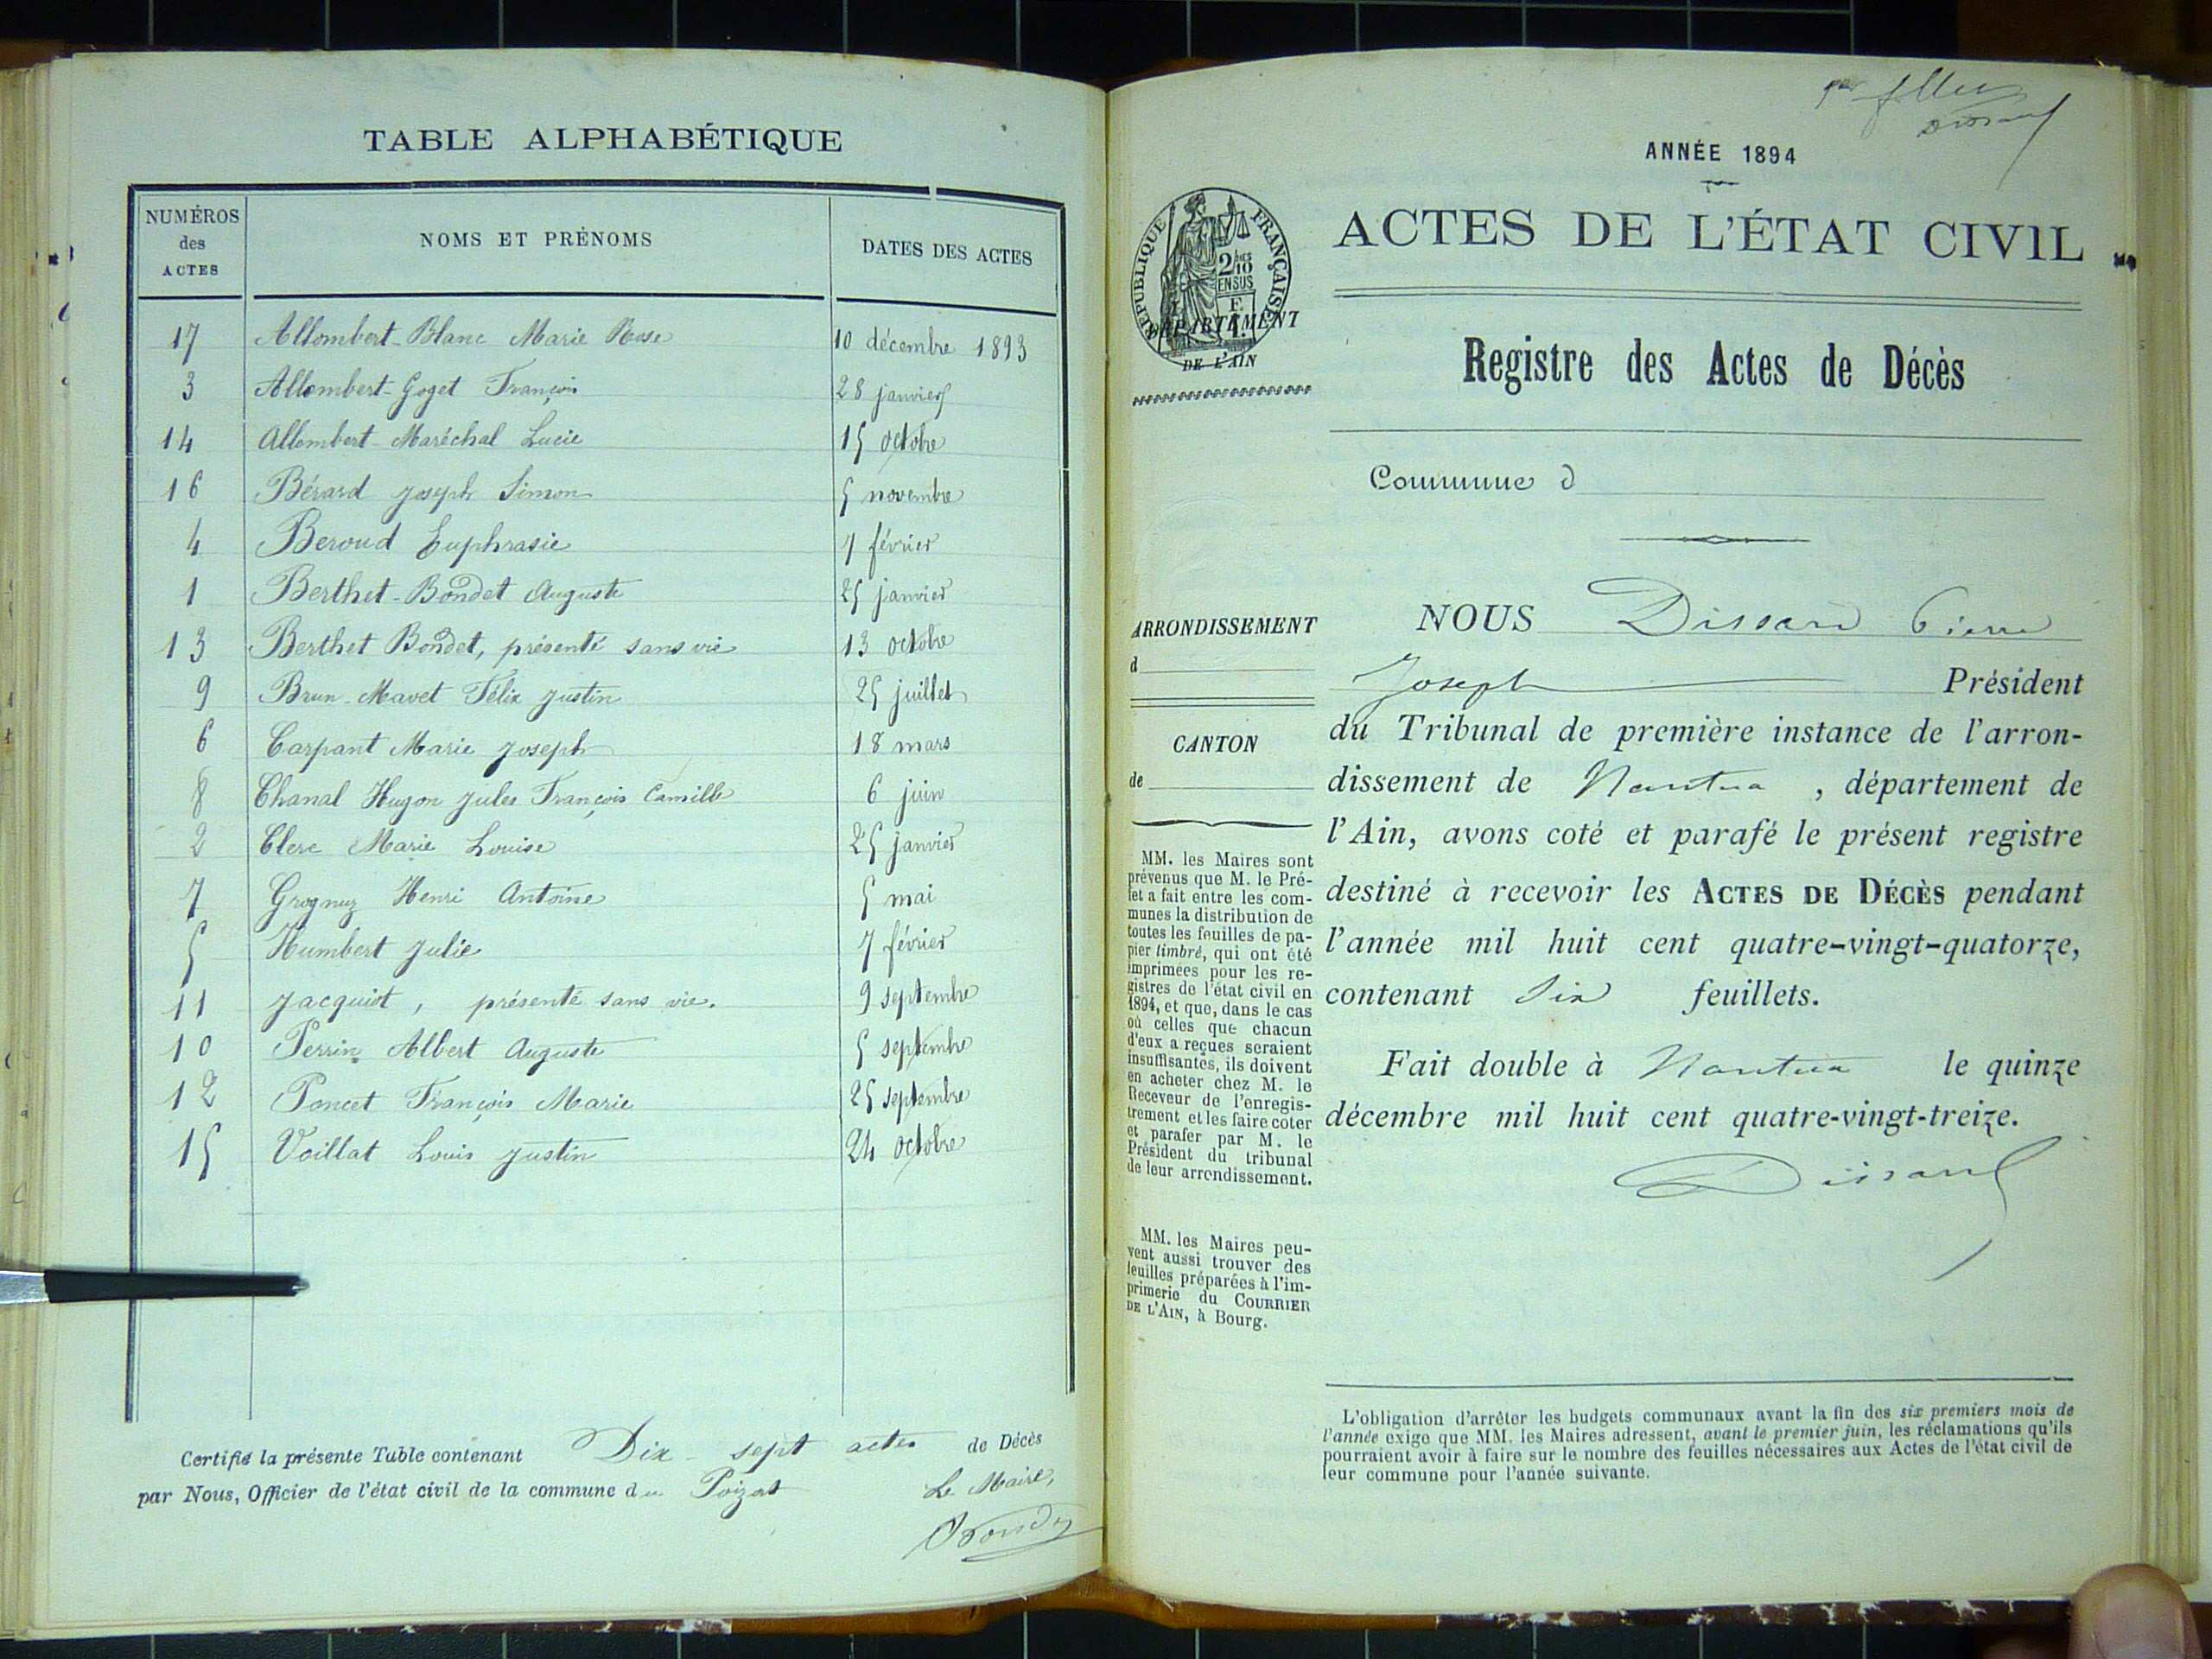 TABLE ALPHABÉTIQUE
NUMÉROS des ACTES NOMS ET PRÉNOMS DATES DES ACTES
17 Allombert-Blanc Marie Rose 10 décembre 1893
3 Allombert-Goget François 28 janvier
14 Allombert-Maréchal Lucie 15 octobre
16 Bérard Joseph Simon 5 novembre
4 Beroud Euphrasie 7 février
1 Berthet-Bondet Auguste 25 janvier
13 Berthet Bondet, présenté sans vie 13 octobre
9 Brun-Mavet Félix Justin 25 juillet
6 Carpant Marie Joseph 18 mars
8 Chanal Hugon Jules François Camille 6 juin
2 Clerc Marie Louise 25 janvier
7 Grognuz Henri Antoine 5 mai
5 Humbert Julie 7 février
11 Jacquiot, présenté sans vie. 9 septembre
10 Perrin Albert Auguste 5 septembre
12 Poncet François Marie 25 septembre
15 Voillat Louis Justin 24 octobre
Certifié la présente Table contenant Dix-sept actes de Décès
par Nous, Officier de l'état civil de la commune du Poizat
Le Maire,
ANNÉE 1894
ACTES DE L'ÉTAT CIVIL
RÉPUBLIQUE FRANÇAISE
2/10 EN SUS
DÉPARTEMENT
DE L'AIN
Registre des Actes de Décès
Commune d
ARRONDISSEMENT
d
CANTON
de
MM. les Maires sont
prévenus que M. le Pré-
fet a fait entre les com-
munes la distribution de
toutes les feuilles de pa-
pier timbré, qui ont été
imprimées pour les re-
gistres de l'état civil en
1894, et que, dans le cas
où celles que chacun
d'eux a reçues seraient
insuffisantes, ils doivent
en acheter chez M. le
Receveur de l'enregis-
trement et les faire coter
et parafer par M. le
Président du tribunal
de leur arrondissement.
MM. les Maires peu-
vent aussi trouver des
feuilles préparées à l'im-
primerie du COURRIER
DE L'AIN, à Bourg.
NOUS Dissard Pierre
Joseph Président
du Tribunal de première instance de l'arron-
dissement de Nantua, département de
l'Ain, avons coté et parafé le présent registre
destiné à recevoir les ACTES DE DÉCÈS pendant
l'année mil huit cent quatre-vingt-quatorze,
contenant Six feuillets.
Fait double à Nantua le quinze
décembre mil huit cent quatre-vingt-treize.
Dissard
L'obligation d'arrêter les budgets communaux avant la fin des six premiers mois de
l'année exige que MM. les Maires adressent, avant le premier juin, les réclamations qu'ils
pourraient avoir à faire sur le nombre des feuilles nécessaires aux Actes de l'état civil de
leur commune pour l'année suivante.